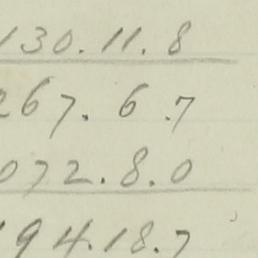 130.11.8
267.6.7
072.8.0
194.18.7